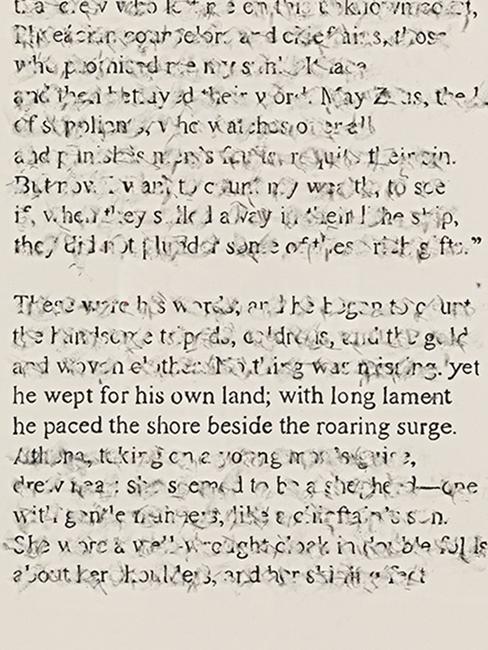 crew who me on this unknown coast,
Phaeacian counselors and chieftains, those
who promised me my
and then betrayed their word. May Zeus, the
of suppliants, who watches over all
and punishes men's faults, requite their sin.
But now I want to count my wealth, to see
if, when they sailed away in their ship,
they did not plunder some of these rich gifts.”
These were his words, and he began to count
the handsome tripods, caldrons, and the gold
and woven clothes. Nothing was missing, yet
he wept for his own land; with long lament
he paced the shore beside the roaring surge.
Athena, taking on a young man's guise,
drew near: she seemed to be a shepherd—one
with gentle manners, like a chieftain's son.
She wore a well-wrought cloak in double folds
about her shoulders, and her shining feet